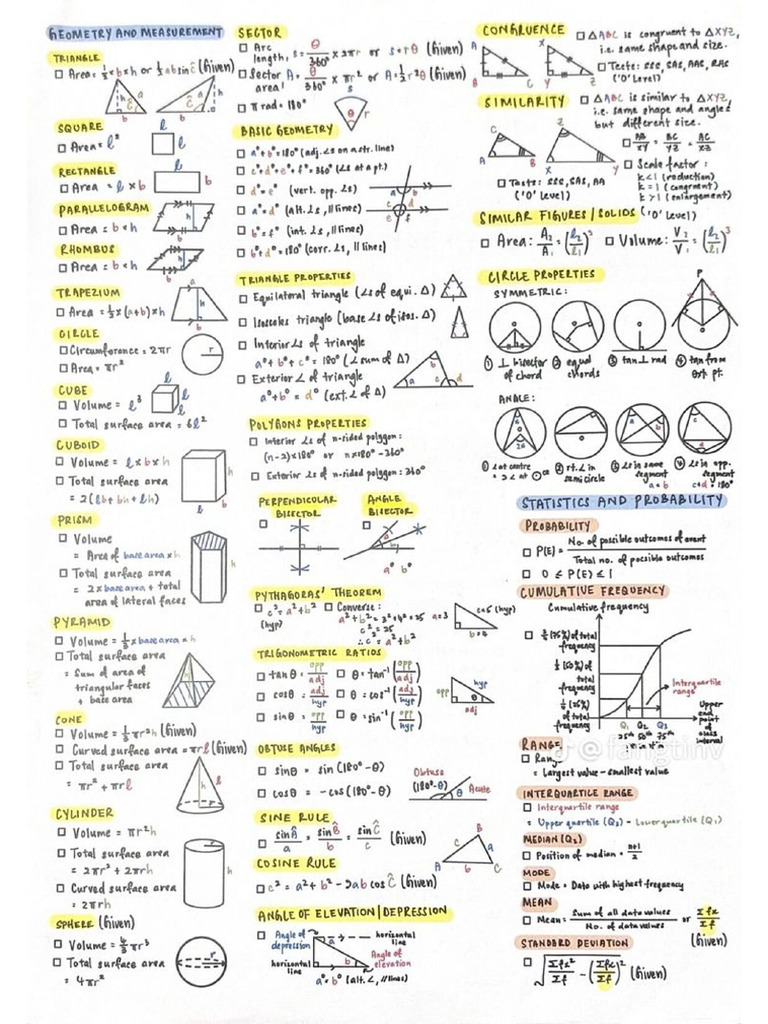 GEOMETRY AND MEASUREMENT
TRIANGLE
Area = ½ × b × h or ½ ab sin Ĉ (Given)
SQUARE
Area = l²
RECTANGLE
Area = l × b
PARALLELOGRAM
Area = b × h
RHOMBUS
Area = b × h
TRAPEZIUM
Area = ½ × (a+b) × h
CIRCLE
Circumference = 2πr
Area = πr²
CUBE
Volume = l³
Total surface area = 6l²
CUBOID
Volume = l × b × h
Total surface area
= 2(lb + bh + lh)
PRISM
Volume
= Area of base area × h
Total surface area
= 2 × base area + total
area of lateral faces
PYRAMID
Volume = ⅓ × base area × h
Total surface area
= Sum of area of
triangular faces
+ base area
CONE
Volume = ⅓πr²h (Given)
Curved surface area = πrl (Given)
Total surface area
= πr² + πrl
CYLINDER
Volume = πr²h
Total surface area
= 2πr² + 2πrh
Curved surface area
= 2πrh
SPHERE (Given)
Volume = 4/3 πr³
Total surface area
= 4πr²
SECTOR
Arc
length, s = θ/360° × 2πr or s = rθ (Given)
Sector A = θ/360° × πr² or A = ½r²θ (Given)
area:
π rad = 180°
BASIC GEOMETRY
a° + b° = 180° (adj. ∠s on a str. line)
c° + d° + e° + f° = 360° (∠s at a pt.)
d° = e° (vert. opp. ∠s)
a° = d° (alt. ∠s, // lines)
b° = f° (int. ∠s, // lines)
b° + d° = 180° (corr. ∠s, // lines)
TRIANGLE PROPERTIES
Equilateral triangle (∠s of equi. Δ)
Isosceles triangle (base ∠s of isos. Δ)
Interior ∠s of triangle
a° + b° + c° = 180° (∠ sum of Δ)
Exterior ∠ of triangle
a° + b° = d° (ext. ∠ of Δ)
POLYGONS PROPERTIES
Interior ∠s of n-sided polygon:
(n-2) × 180° or n × 180° - 360°
Exterior ∠s of n-sided polygon: 360°
PERPENDICULAR
BISECTOR
ANGLE
BISECTOR
a° b°
PYTHAGORAS' THEOREM
c² = a² + b²
(hyp)
Converse:
a² + b² = 3² + 4² = 25
c² = 25
∴ c² = a² + b²
a=3
c=5 (hyp)
b=4
TRIGONOMETRIC RATIOS
tan θ = opp/adj θ = tan⁻¹(opp/adj)
cos θ = adj/hyp θ = cos⁻¹(adj/hyp)
sin θ = opp/hyp θ = sin⁻¹(opp/hyp)
opp
hyp
θ
adj
OBTUSE ANGLES
sin θ = sin (180° - θ)
cos θ = -cos (180° - θ)
Obtuse
(180° - θ)
θ
Acute
SINE RULE
sin Â/a = sin B̂/b = sin Ĉ/c (Given)
COSINE RULE
c² = a² + b² - 2ab cos Ĉ (Given)
ANGLE OF ELEVATION/DEPRESSION
Angle of
depression
horizontal
line
horizontal
line
Angle of
elevation
a° = b° (alt. ∠, // lines)
CONGRUENCE
ΔABC is congruent to ΔXYZ,
i.e. same shape and size.
Tests: SSS, SAS, AAS, RHS
('O' Level)
SIMILARITY
ΔABC is similar to ΔXYZ,
i.e. same shape and angles
but different size.
AB/XY = BC/YZ = AC/XZ
Scale factor:
k < 1 (reduction)
k = 1 (congruent)
k > 1 (enlargement)
Tests: SSS, SAS, AA
('O' Level)
SIMILAR FIGURES/SOLIDS ('O' Level)
Area: A₂/A₁ = (l₂/l₁)² Volume: V₂/V₁ = (l₂/l₁)³
CIRCLE PROPERTIES
SYMMETRIC:
① ⊥ bisector
of chord
② equal
chords
③ tan ⊥ rad
④ tan from
ext. pt.
ANGLE:
① ∠ at centre
= 2∠ at
② rt. ∠ in
semicircle
③ ∠s in same
segment
a = b
④ ∠s in opp.
segment
c + d = 180°
STATISTICS AND PROBABILITY
PROBABILITY
P(E) = No. of possible outcomes of event / Total no. of possible outcomes
0 ≤ P(E) ≤ 1
CUMULATIVE FREQUENCY
Cumulative frequency
¾ (75%) of total
frequency
½ (50%) of total
frequency
¼ (25%)
of total
frequency
Interquartile
range
Q₁ Q₂ Q₃
25th 50th 75th
Upper
end
point of
class
interval
RANGE
Range
= Largest value - smallest value
@fangtinv
INTERQUARTILE RANGE
Interquartile range
= Upper quartile (Q₃) - Lower quartile (Q₁)
MEDIAN (Q₂)
Position of median = n+1/2
MODE
Mode = Data with highest frequency
MEAN
Mean = Sum of all data values / No. of data values or Σfx/Σf
(Given)
STANDARD DEVIATION
√(Σfx²/Σf - (Σfx/Σf)²) (Given)